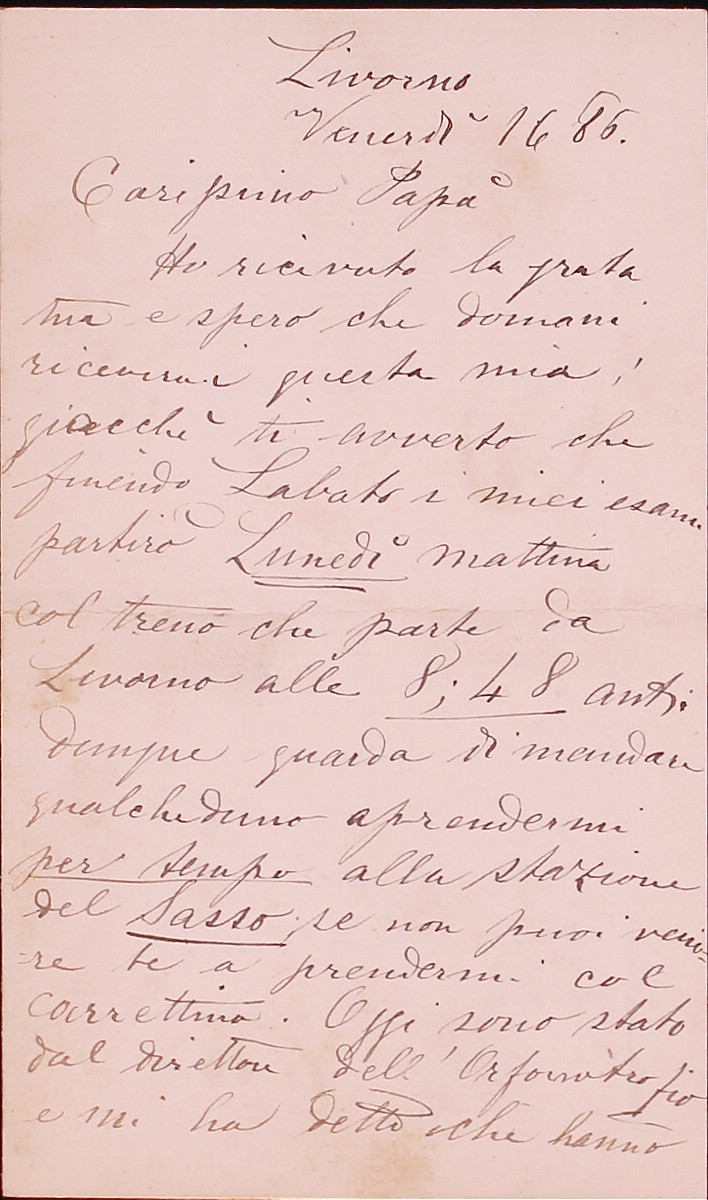 Livorno
Venerdì 16 86.
Carissimo Papà
Ho ricevuto la grata
tua e spero che domani
riceverai questa mia,
giacchè ti avverto che
finendo Sabato i miei esami
partirò Lunedì mattina
col treno che parte da
Livorno alle 8;48 anti.
dunque guarda di mandare
qualcheduno aprendermi
per tempo alla stazione
del Sasso, se non puoi veni=
=re te a prendermi col
carrettino. Oggi sono stato
dal direttore dell'Orfanotrofio
e mi ha detto che hanno